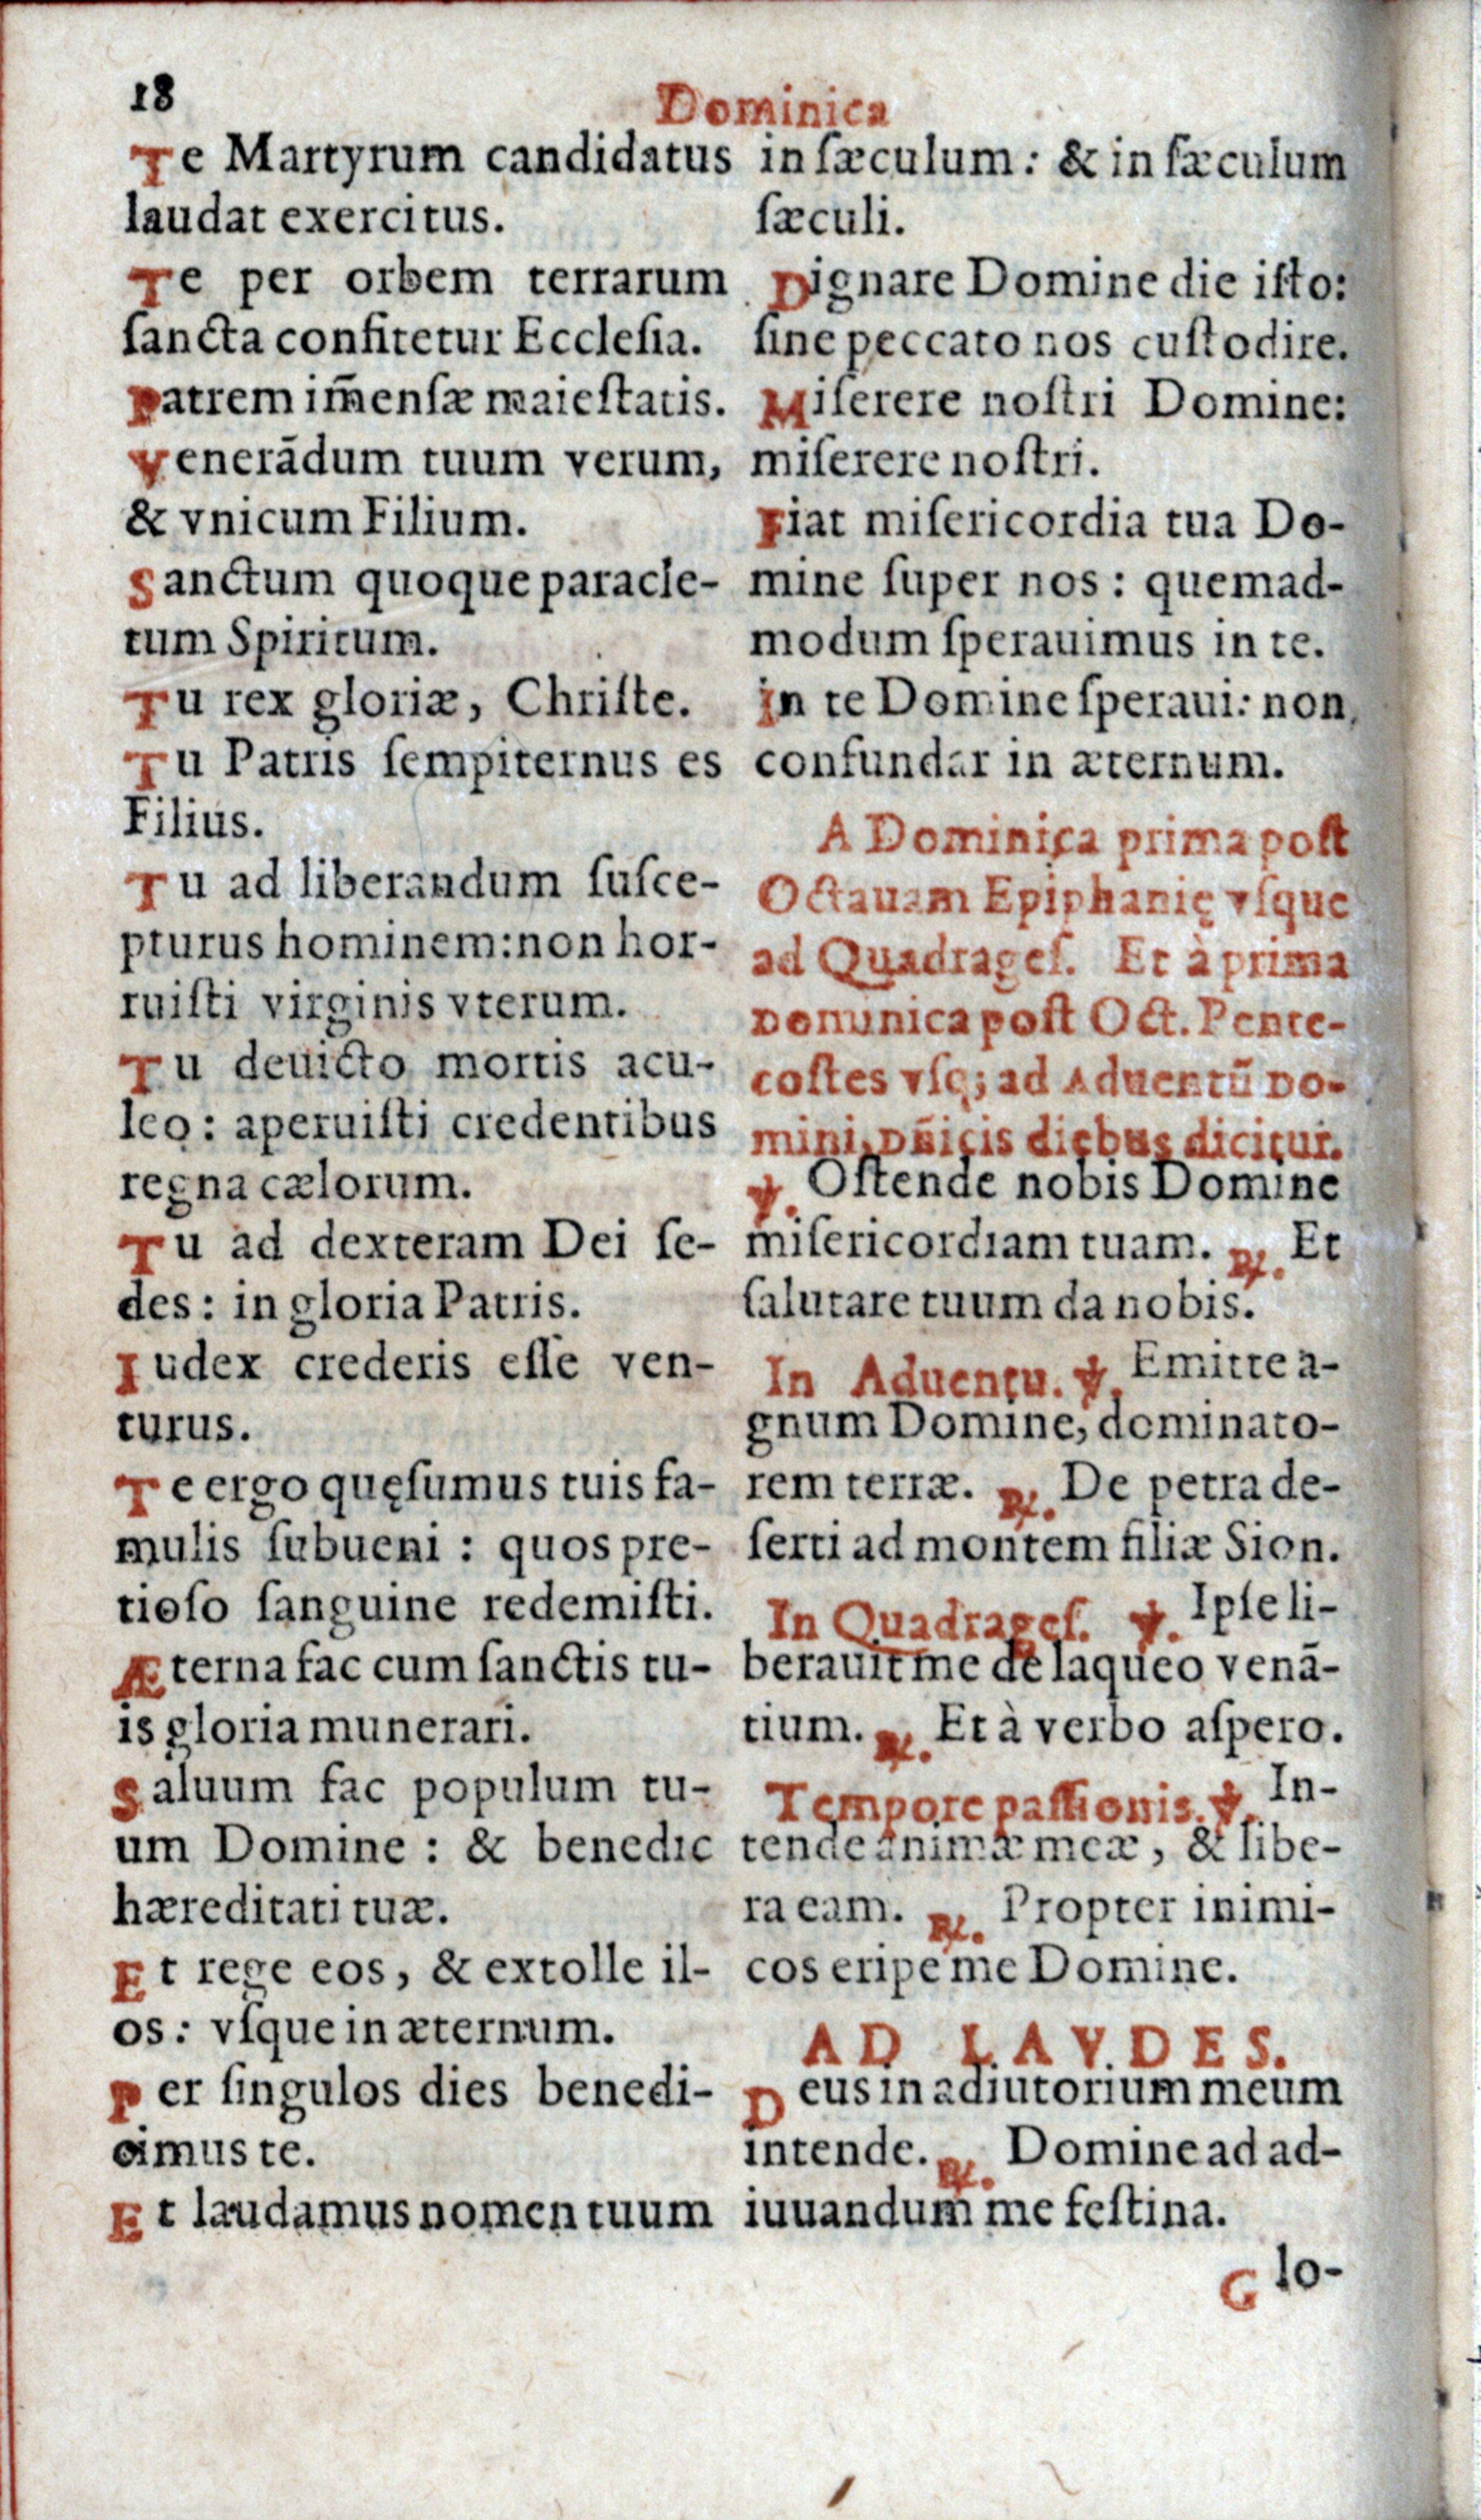 18
Dominica
Te Martyrum candidatus
laudat exercitus.
Te per orbem terrarum
ſancta confitetur Eccleſia.
Patrem im̃enſæ maieſtatis.
Venerãdum tuum verum,
& vnicum Filium.
Sanctum quoque paracle-
tum Spiritum.
Tu rex gloriæ, Chriſte.
Tu Patris ſempiternus es
Filius.
Tu ad liberandum ſuſce-
pturus hominem: non hor-
ruiſti virginis vterum.
Tu deuicto mortis acu-
leo: aperuiſti credentibus
regna cælorum.
Tu ad dexteram Dei ſe-
des: in gloria Patris.
Iudex crederis eſſe ven-
turus.
Te ergo quęſumus tuis fa-
mulis ſubueni: quos pre-
tioſo ſanguine redemiſti.
Æterna fac cum ſanctis tu-
is gloria munerari.
Saluum fac populum tu-
um Domine: & benedic
hæreditati tuæ.
Et rege eos, & extolle il-
os: vſque in æternum.
Per ſingulos dies benedi-
cimus te.
Et laudamus nomen tuum
in ſæculum: & in ſæculum
ſæculi.
Dignare Domine die iſto:
ſine peccato nos cuſtodire.
Miſerere noſtri Domine:
miſerere noſtri.
Fiat miſericordia tua Do-
mine ſuper nos: quemad-
modum ſperauimus in te.
In te Domine ſperaui: non
confundar in æternum.
A Dominica prima poſt
Octauam Epiphanię vſque
ad Quadrageſ. Et à prima
Dominica poſt Oct. Pente-
coſtes vſq; ad Aduentũ Do-
mini, Dñicis diebus dicitur.
℣. Oſtende nobis Domine
miſericordiam tuam. ℟. Et
ſalutare tuum da nobis.
In Aduentu. ℣. Emitte a-
gnum Domine, dominato-
rem terræ. ℟. De petra de-
ſerti ad montem filiæ Sion.
In Quadrageſ. ℣. Ipſe li-
berauit me de laqueo venã-
tium. ℟. Et à verbo aſpero.
Tempore paſſionis. ℣. In-
tende animæ meæ, & libe-
ra eam. ℟. Propter inimi-
cos eripe me Domine.
AD LAVDES.
Deus in adiutorium meum
intende. ℟. Domine ad ad-
iuuandum me feſtina.
Glo-